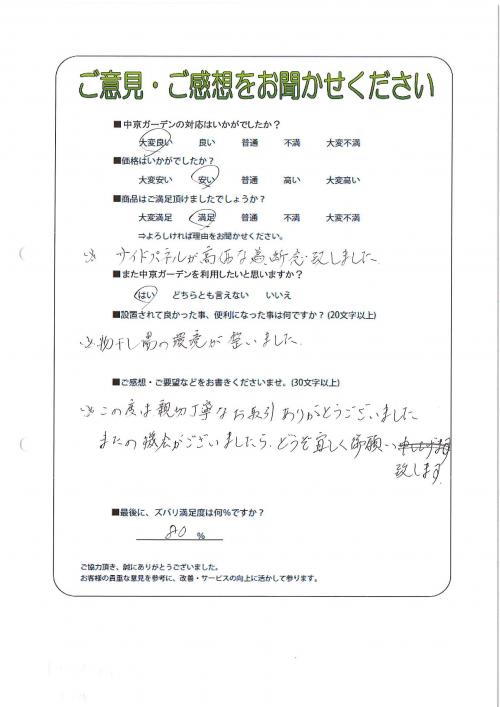 ご意見・ご感想をお聞かせください
■中京ガーデンの対応はいかがでしたか？
大変良い 良い 普通 不満 大変不満
■価格はいかがでしたか？
大変安い 安い 普通 高い 大変高い
■商品はご満足頂けましたでしょうか？
大変満足 満足 普通 不満 大変不満
⇒よろしければ理由をお聞かせください。
※ サイドパネルが高価な為、断念致しました
■また中京ガーデンを利用したいと思いますか？
はい どちらとも言えない いいえ
■設置されて良かった事、便利になった事は何ですか？（20文字以上）
※物干し場の環境が整いました．
■ご感想・ご要望などをお書きくださいませ。（30文字以上）
※この度は親切丁寧なお取引ありがとうございました
またの機会がございましたら、どうぞ宜しく御願い申し上げます
致します
■最後に、ズバリ満足度は何％ですか？
80 ％
ご協力頂き、誠にありがとうございました。
お客様の貴重な意見を参考に、改善・サービスの向上に活かして参ります。